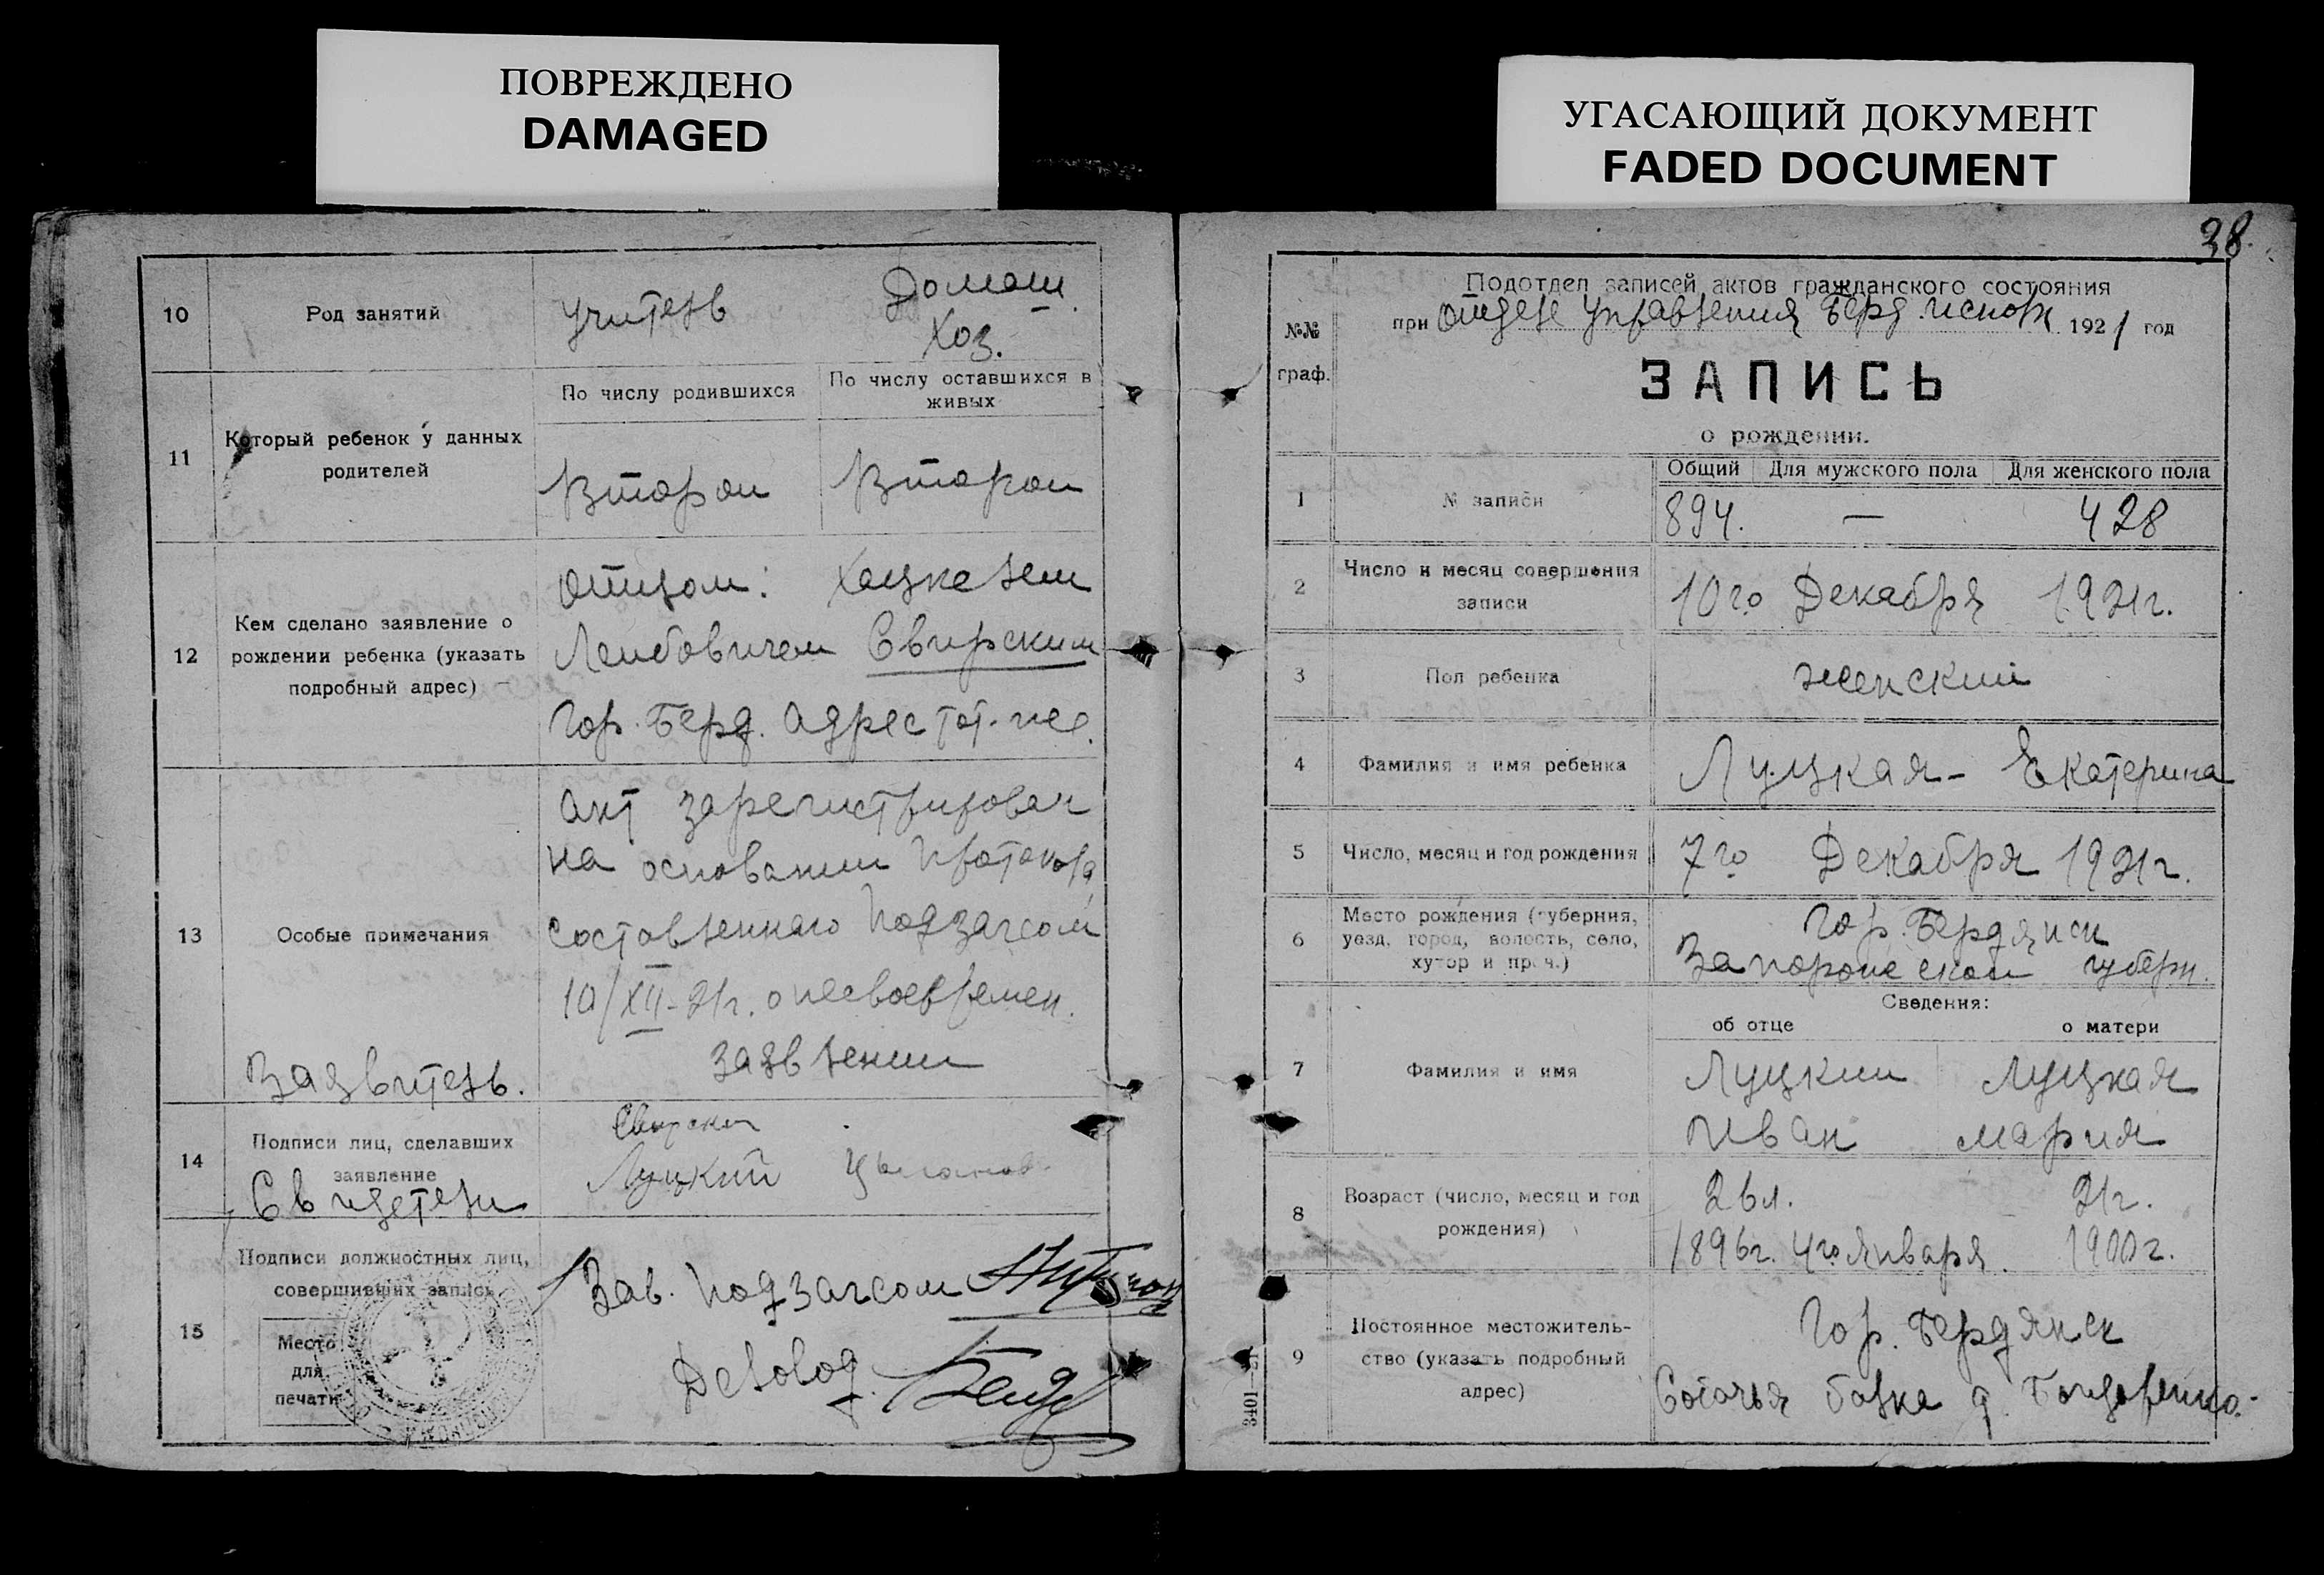 ПОВРЕЖДЕНО
DAMAGED
УГАСАЮЩИЙ ДОКУМЕНТ
FADED DOCUMENT
10
Род занятий
учитель
Домаш.
Хоз.
11
Который ребенок у данных
родителей
По числу родившихся
По числу оставшихся в
живых
Второй
Второй
12
Кем сделано заявление о
рождении ребенка (указать
подробный адрес)
Отцом: Хацкелем
Лейбовичем Свирским
Гор. Берд. Адрес тот-же.
13
Особые примечания
Акт зарегистрирован
на основании протокола
составленнаго подзагсом
10/XII-21г. о несвоевремен.
заявлении
Заявитель.
14
Подписи лиц, сделавших
заявление
Свидетели
Свирский
Луцкий
15
Подписи должностных лиц,
совершивших запись
Место
для
печати
Зав. подзагсом
Деловод.
38.
№№
граф.
Подотдел записей актов гражданского состояния
при Отделе Управления Берд. исполк 1921 год
ЗАПИСЬ
о рождении.
1
№ записи
Общий
Для мужского пола
Для женского пола
894.
—
428
2
Число и месяц совершения
записи
10го Декабря 1921г.
3
Пол ребенка
женский
4
Фамилия и имя ребенка
Луцкая - Екатерина
5
Число, месяц и год рождения
7го Декабря 1921г.
6
Место рождения (губерния,
уезд, город, волость, село,
хутор и проч.)
Гор. Бердянск
Запорожской губерн.
Сведения:
об отце
о матери
7
Фамилия и имя
Луцкий
Луцкая
Иван
Мария
8
Возраст (число, месяц и год
рождения)
26л.
21г.
1896г. 4го Января.
1900г.
9
Постоянное местожитель-
ство (указать подробный
адрес)
Гор. Бердянск
Собачья балка д. Бондаренко.